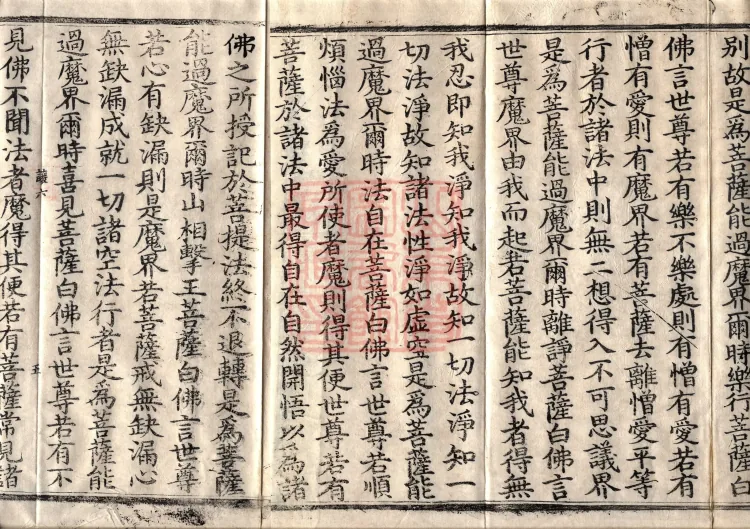 別故是為菩薩能過魔界爾時樂行菩薩白
佛言世尊若有樂不樂處則有憎有愛若有
憎有愛則有魔界若有菩薩去離憎愛平等
行者於諸法中則無二想得入不可思議界
是為菩薩能過魔界爾時離諍菩薩白佛言
世尊魔界由我而起若菩薩能知我者得無
我忍即知我淨知我淨故知一切法淨知一
切法淨故知諸法性淨如虛空是為菩薩能
過魔界爾時法自在菩薩白佛言世尊若順
煩惱法為愛所使者魔則得其便世尊若有
菩薩於諸法中最得自在自然開悟以為諸
佛之所授記於菩提法終不退轉是為菩薩
能過魔界爾時山相擊王菩薩白佛言世尊
若心有缺漏則是魔界若菩薩戒無缺漏心
無缺漏成就一切諸空法行者是為菩薩能
過魔界爾時喜見菩薩白佛言世尊若有不
見佛不聞法者魔得其便若有菩薩常見諸
五